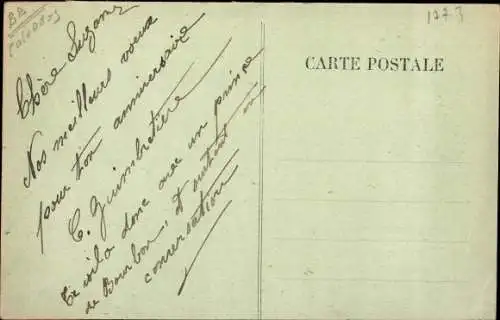 Chère Suzanne
Nos meilleurs vœux
pour ton anniversaire
C. Guimbretière
Te voilà donc avec un prince
de Bourbon, et surtout en
conversation
CARTE POSTALE
1273